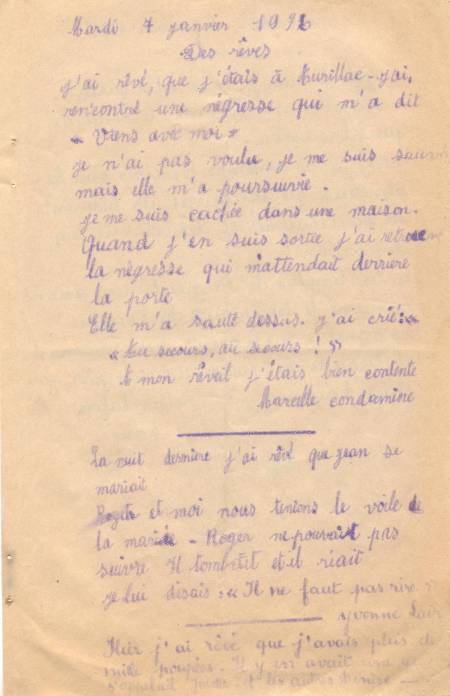 Mardi 7 janvier 19
Des rêves
J'ai rêvé, que j'étais à Aurillac - j'ai,
rencontré une négresse qui m'a dit
« Viens avec moi »
Je n'ai pas voulu, je me suis sauvée
mais elle m'a poursuivie.
Je me suis cachée dans une maison.
Quand j'en suis sortie j'ai retrouvé
la négresse qui m'attendait derrière
la porte
Elle m'a sauté dessus. J'ai crié: «
« Au secours, au secours ! »
A mon réveil j'étais bien contente
Mareille condamine
La nuit dernière j'ai rêvé que Jean se
mariait
Roger et moi nous tenions le voile de
la mariée - Roger ne pouvait pas
suivre Il tombetit et il riait
Je lui disais : « Il ne faut pas rire »
Yvonne
Hier j'ai rêvé que j'avais plus de
mille poupées - Il y en avait une
s'appelait et les autres